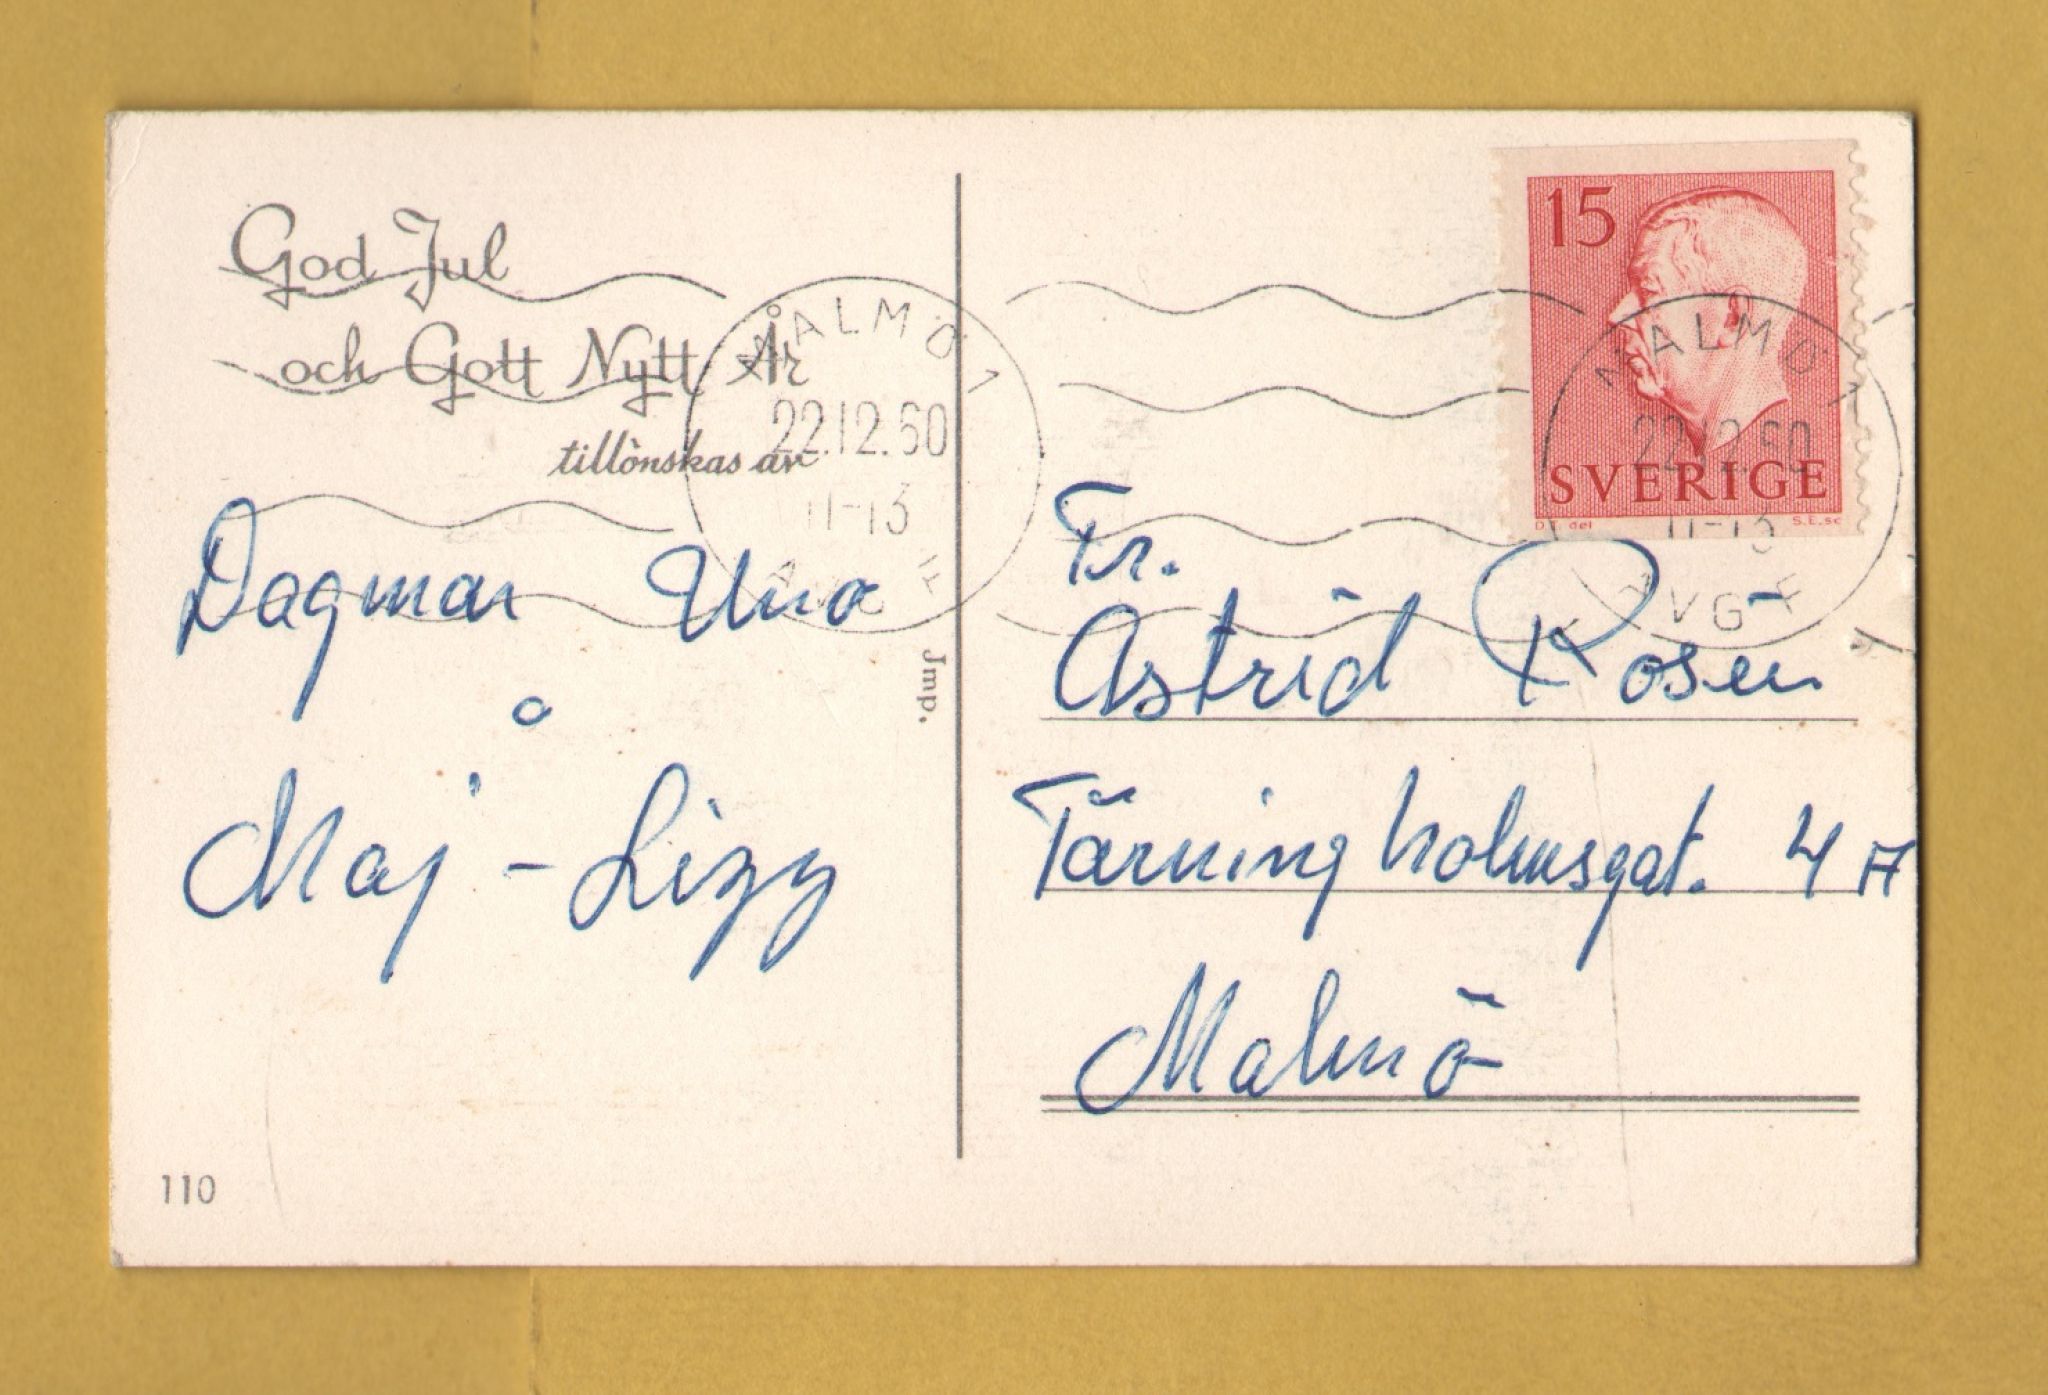 God Jul
och Gott Nytt År
tillönskas av
Dagmar Una
o
Maj-Lizz
110
Imp.
MALMÖ 1
22.12.60
11-13
AVG F
15
SVERIGE
S.E.sc
MALMÖ 1
22.12.60
11-13
AVG F
Fr.
Astrid Rosén
Tärningholmsgat. 4 A
Malmö